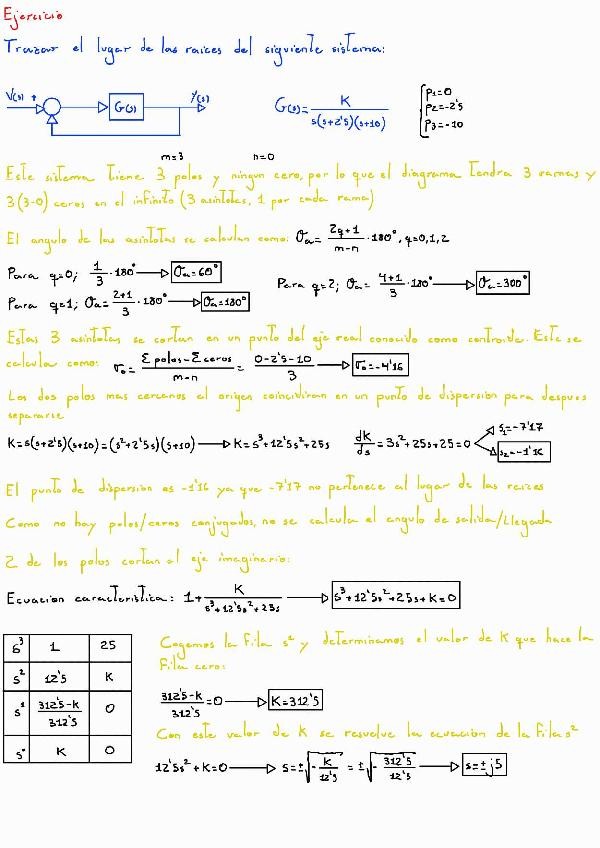 Ejercicio
Trazar el lugar de las raices del siguiente sistema:
V(s) + G(s) Y(s)
G(s)= K / s(s+2'5)(s+10)
p1=0
p2=-2'5
p3=-10
m=3 n=0
Este sistema tiene 3 polos y ningun cero, por lo que el diagrama tendra 3 ramas y
3(3-0) ceros en el infinito (3 asintotas, 1 por cada rama)
El angulo de las asintotas se calculan como: σa= 2q+1 / m-n · 180°, q=0,1,2
Para q=0; 1/3 · 180° → σa=60°
Para q=2; σa= 4+1 / 3 · 180° → σa=300°
Para q=1; σa= 2+1 / 3 · 180° → σa=180°
Estas 3 asintotas se cortan en un punto del eje real conocido como centroide. Este se
calcula como: σo= Σpolos-Σceros / m-n = 0-2'5-10 / 3 → σo=-4'16
Los dos polos mas cercanos al origen coincidiran en un punto de dispersion para despues
separarse
K=s(s+2'5)(s+10)=(s²+2'5s)(s+10) → K=s³+12'5s²+25s dk/ds=3s²+25s+25=0
s1=-7'17
s2=-1'16
El punto de dispersion es -1'16 ya que -7'17 no pertenece al lugar de las raices
Como no hay polos/ceros conjugados, no se calcula el angulo de salida/llegada
2 de los polos cortan al eje imaginario:
Ecuacion caracteristica: 1+ K / s³+12'5s²+25s → s³+12'5s²+25s+K=0
s³ 1 25
s² 12'5 K
s¹ 312'5-k / 312'5 0
s° K 0
Cogemos la fila s² y determinamos el valor de K que hace la
fila cero:
312'5-k / 312'5 =0 → K=312'5
Con este valor de K se resuelve la ecuacion de la fila s²
12'5s²+K=0 → s=±√- K/12'5 = ±√- 312'5/12'5 → s=±j5